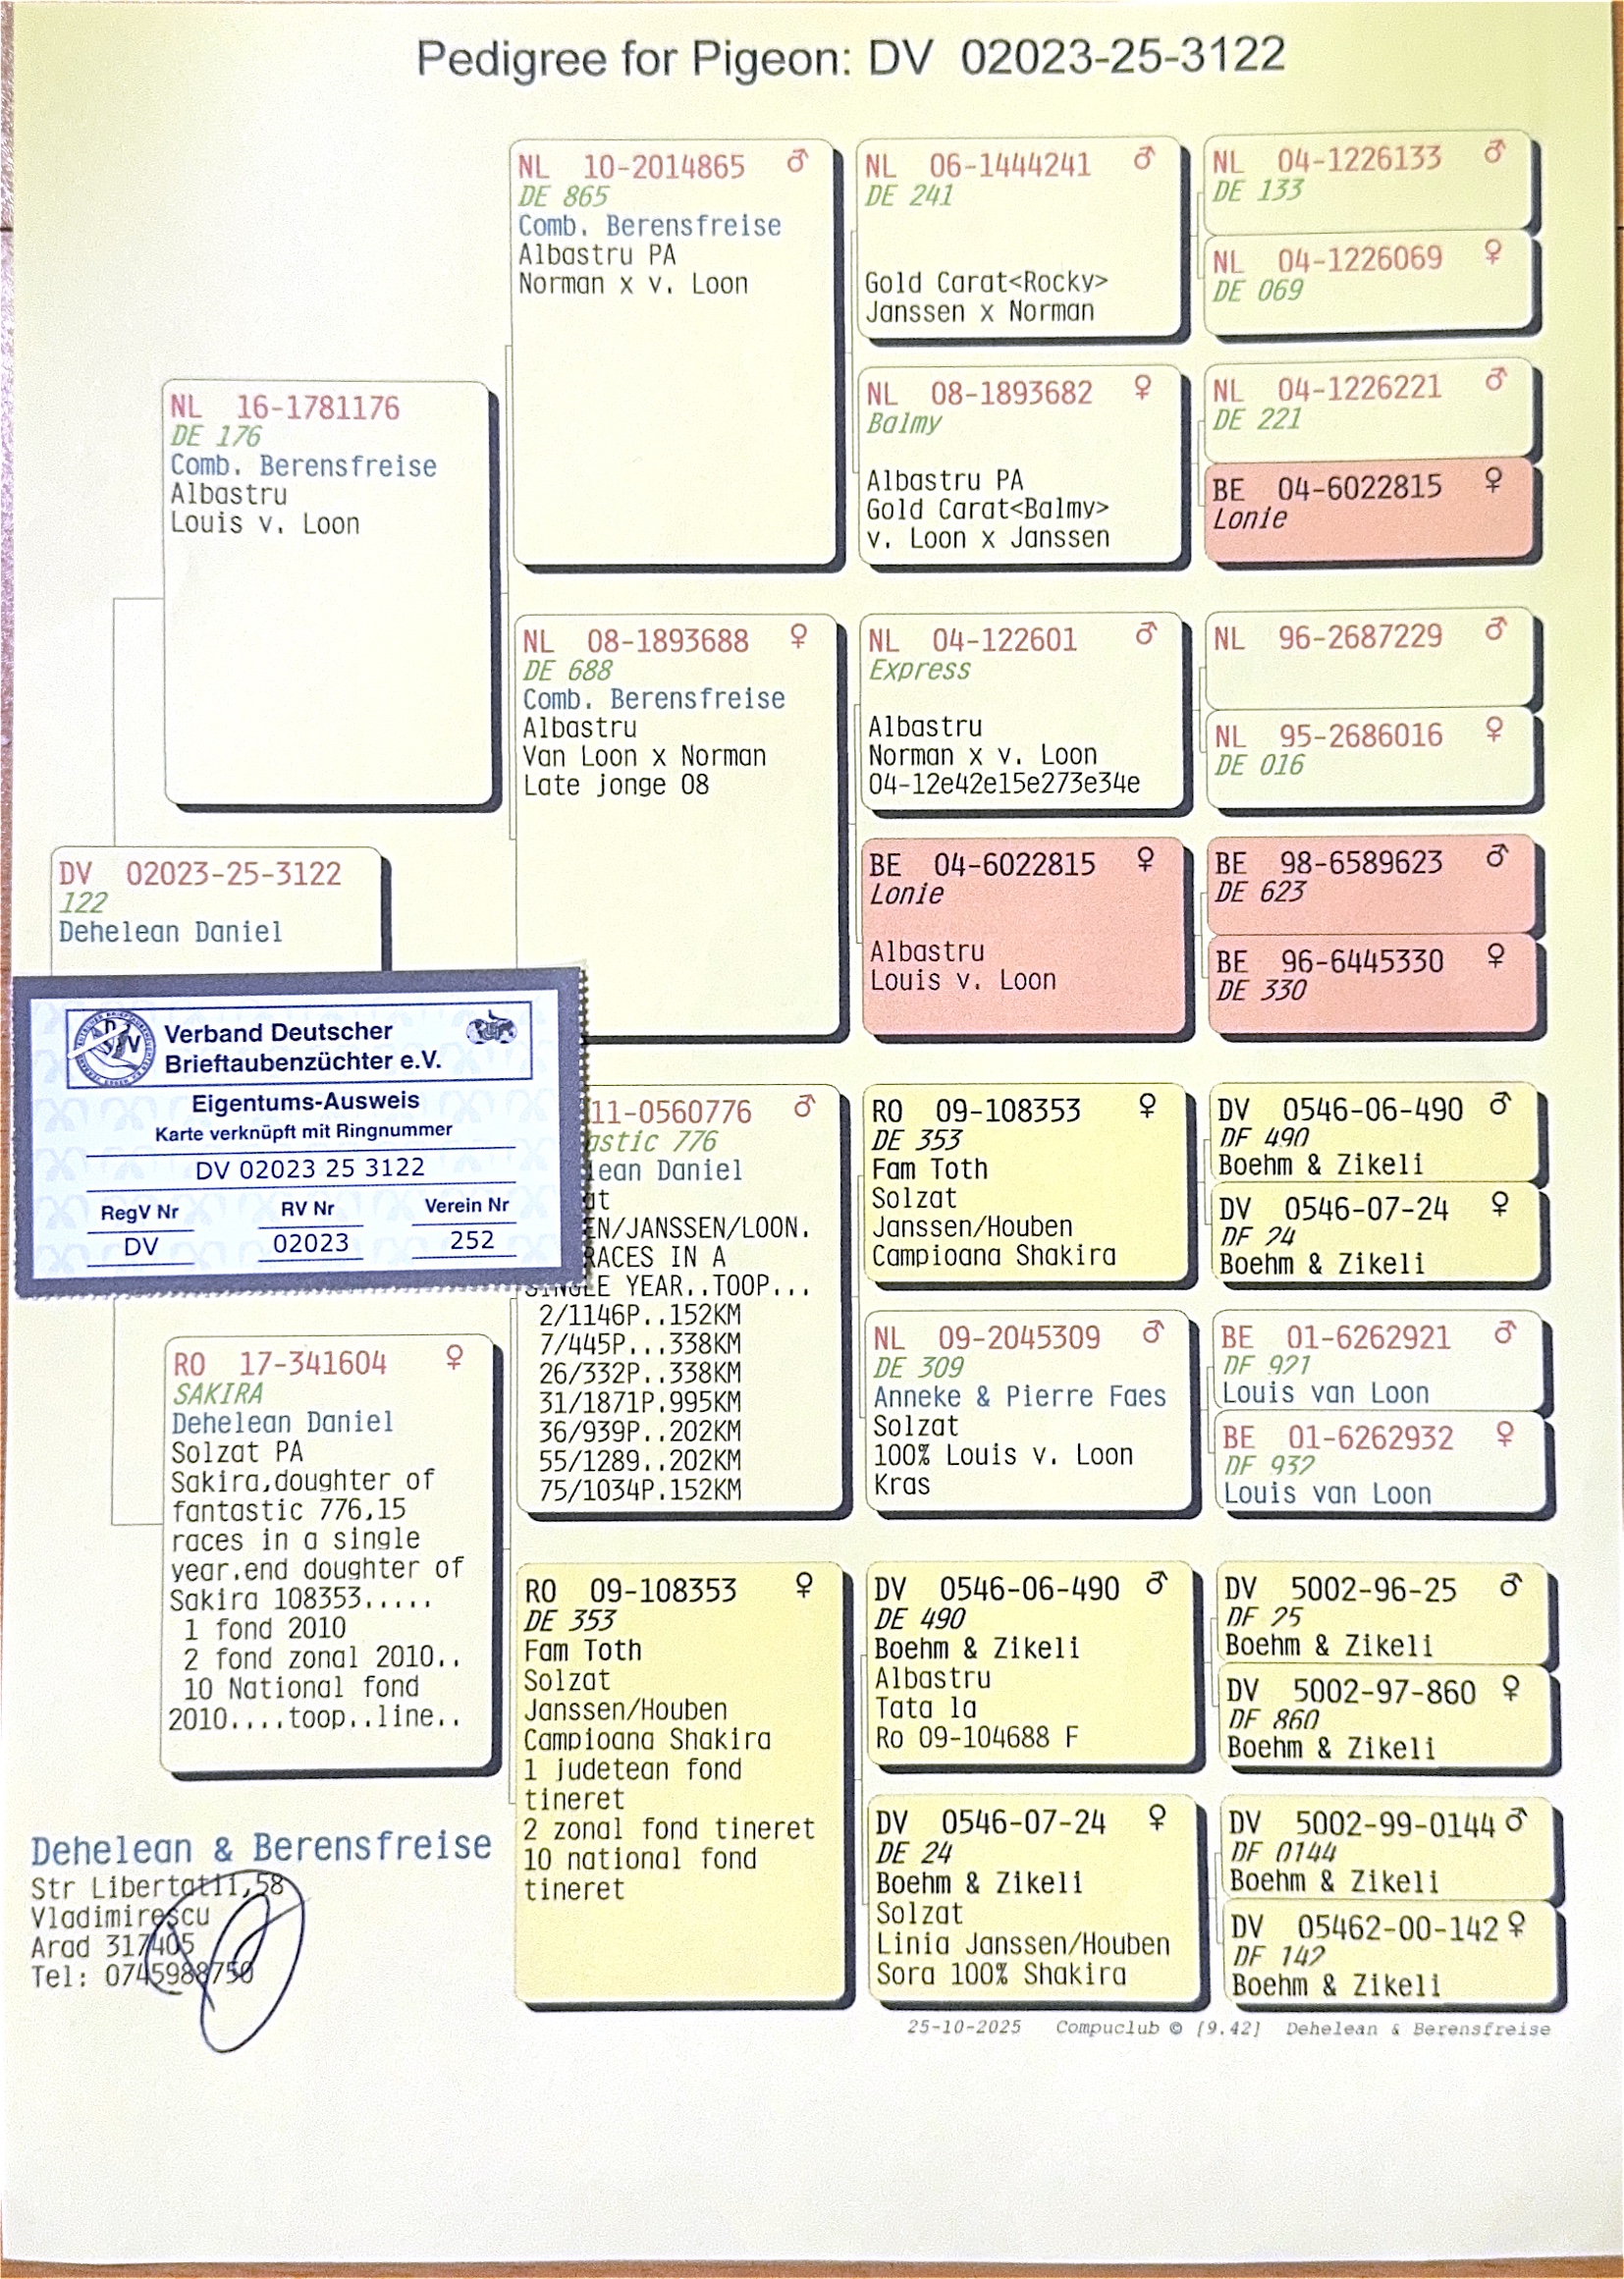 Pedigree for Pigeon: DV 02023-25-3122
DV 02023-25-3122
122
Dehelean Daniel
Verband Deutscher
Brieftaubenzüchter e.V.
Eigentums-Ausweis
Karte verknüpft mit Ringnummer
DV 02023 25 3122
RegV Nr RV Nr Verein Nr
DV 02023 252
NL 16-1781176
DE 176
Comb. Berensfreise
Albastru
Louis v. Loon
RO 17-341604 ♀
SAKIRA
Dehelean Daniel
Solzat PA
Sakira,doughter of
fantastic 776,15
races in a single
year.end doughter of
Sakira 108353.....
1 fond 2010
2 fond zonal 2010..
10 National fond
2010....toop..line..
Dehelean & Berensfreise
Str Libertatii,58
Vladimirescu
Arad 317405
Tel: 0745988750
NL 10-2014865 ♂
DE 865
Comb. Berensfreise
Albastru PA
Norman x v. Loon
NL 08-1893688 ♀
DE 688
Comb. Berensfreise
Albastru
Van Loon x Norman
Late jonge 08
11-0560776 ♂
astic 776
lean Daniel
at
EN/JANSSEN/LOON.
RACES IN A
SINGLE YEAR..TOOP...
2/1146P..152KM
7/445P...338KM
26/332P..338KM
31/1871P.995KM
36/939P..202KM
55/1289..202KM
75/1034P.152KM
RO 09-108353 ♀
DE 353
Fam Toth
Solzat
Janssen/Houben
Campioana Shakira
1 judetean fond
tineret
2 zonal fond tineret
10 national fond
tineret
NL 06-1444241 ♂
DE 241
Gold Carat<Rocky>
Janssen x Norman
NL 08-1893682 ♀
Balmy
Albastru PA
Gold Carat<Balmy>
v. Loon x Janssen
NL 04-122601 ♂
Express
Albastru
Norman x v. Loon
04-12e42e15e273e34e
BE 04-6022815 ♀
Lonie
Albastru
Louis v. Loon
RO 09-108353 ♀
DE 353
Fam Toth
Solzat
Janssen/Houben
Campioana Shakira
NL 09-2045309 ♂
DE 309
Anneke & Pierre Faes
Solzat
100% Louis v. Loon
Kras
DV 0546-06-490 ♂
DE 490
Boehm & Zikeli
Albastru
Tata la
Ro 09-104688 F
DV 0546-07-24 ♀
DE 24
Boehm & Zikeli
Solzat
Linia Janssen/Houben
Sora 100% Shakira
NL 04-1226133 ♂
DE 133
NL 04-1226069 ♀
DE 069
NL 04-1226221 ♂
DE 221
BE 04-6022815 ♀
Lonie
NL 96-2687229 ♂
NL 95-2686016 ♀
DE 016
BE 98-6589623 ♂
DE 623
BE 96-6445330 ♀
DE 330
DV 0546-06-490 ♂
DE 490
Boehm & Zikeli
DV 0546-07-24 ♀
DE 24
Boehm & Zikeli
BE 01-6262921 ♂
DE 921
Louis van Loon
BE 01-6262932 ♀
DE 932
Louis van Loon
DV 5002-96-25 ♂
DE 25
Boehm & Zikeli
DV 5002-97-860 ♀
DE 860
Boehm & Zikeli
DV 5002-99-0144 ♂
DE 0144
Boehm & Zikeli
DV 05462-00-142 ♀
DE 142
Boehm & Zikeli
25-10-2025 Compuclub © [9.42] Dehelean & Berensfreise